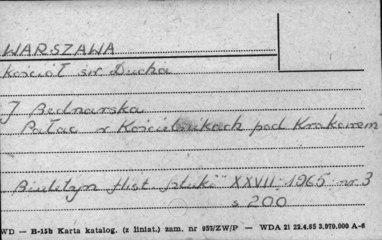 WARSZAWA
Kościół św Ducha
J Bednarska
Pałac w Kościelnikach pod Krakowem
Biuletyn Hist. Sztuki XXVII. 1965 nr 3
s 200
WD — B-15b Karta katalog. (z liniat.) zam. nr 957/ZW/P — WDA 21 22.4.65 3.070.000 A-6